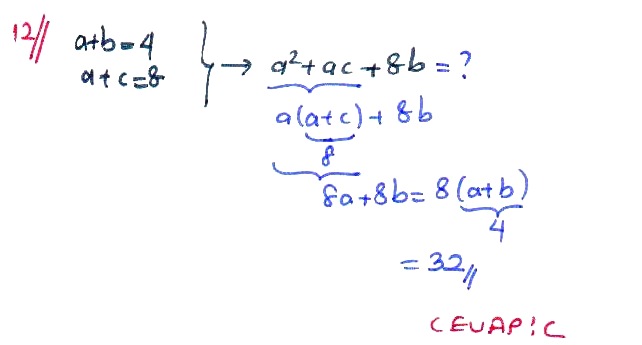 12// a+b=4
a+c=8 } → a²+ac+8b=?
a(a+c)+8b
8
8a+8b=8(a+b)
4
=32//
CEVAP:C